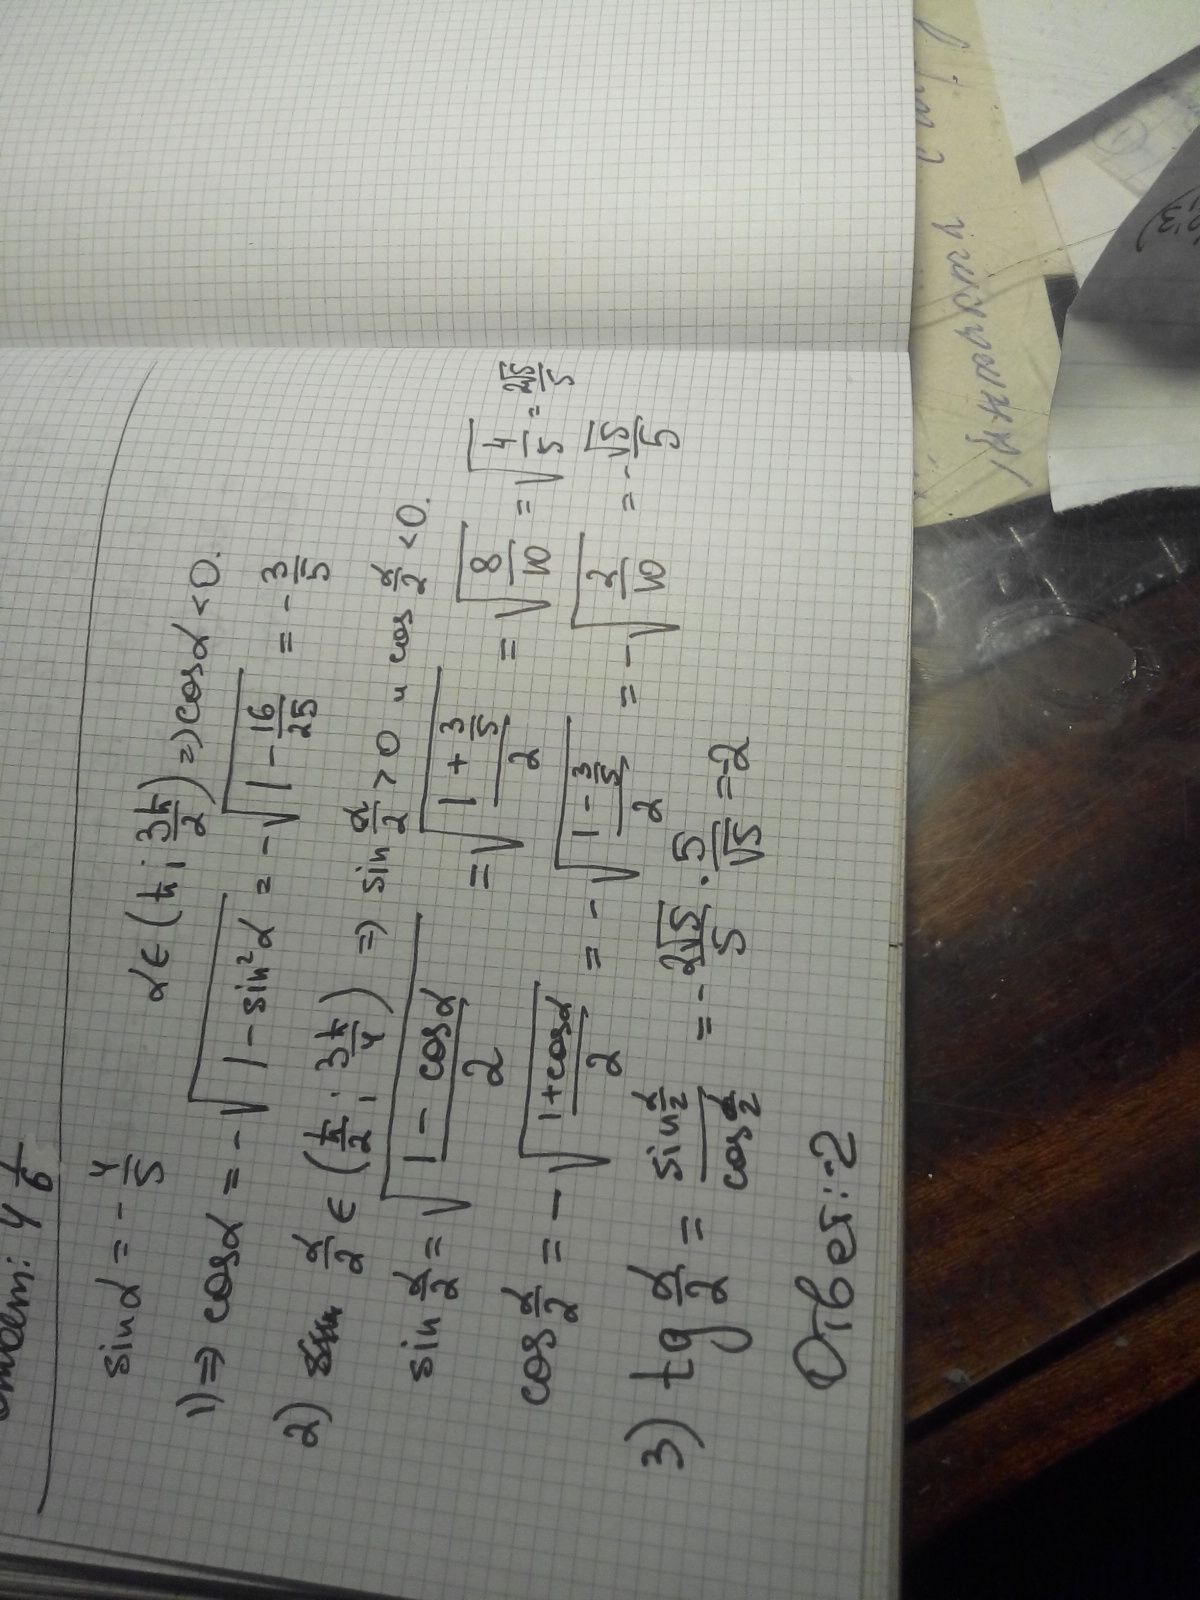 4 1/6
sin α = - 4/5    α ∈ (π; 3π/2) => cos α < 0.
1) => cos α = - √(1 - sin² α) = - √(1 - 16/25) = - 3/5
2) α/2 ∈ (π/2; 3π/4) => sin α/2 > 0 и cos α/2 < 0.
sin α/2 = √((1 - cos α)/2) = √((1 + 3/5)/2) = √(8/10) = √(4/5) = 2√5/5
cos α/2 = - √((1 + cos α)/2) = - √((1 - 3/5)/2) = - √(2/10) = - √5/5
3) tg α/2 = (sin α/2)/(cos α/2) = - 2√5/5 · 5/√5 = -2
Ответ: -2